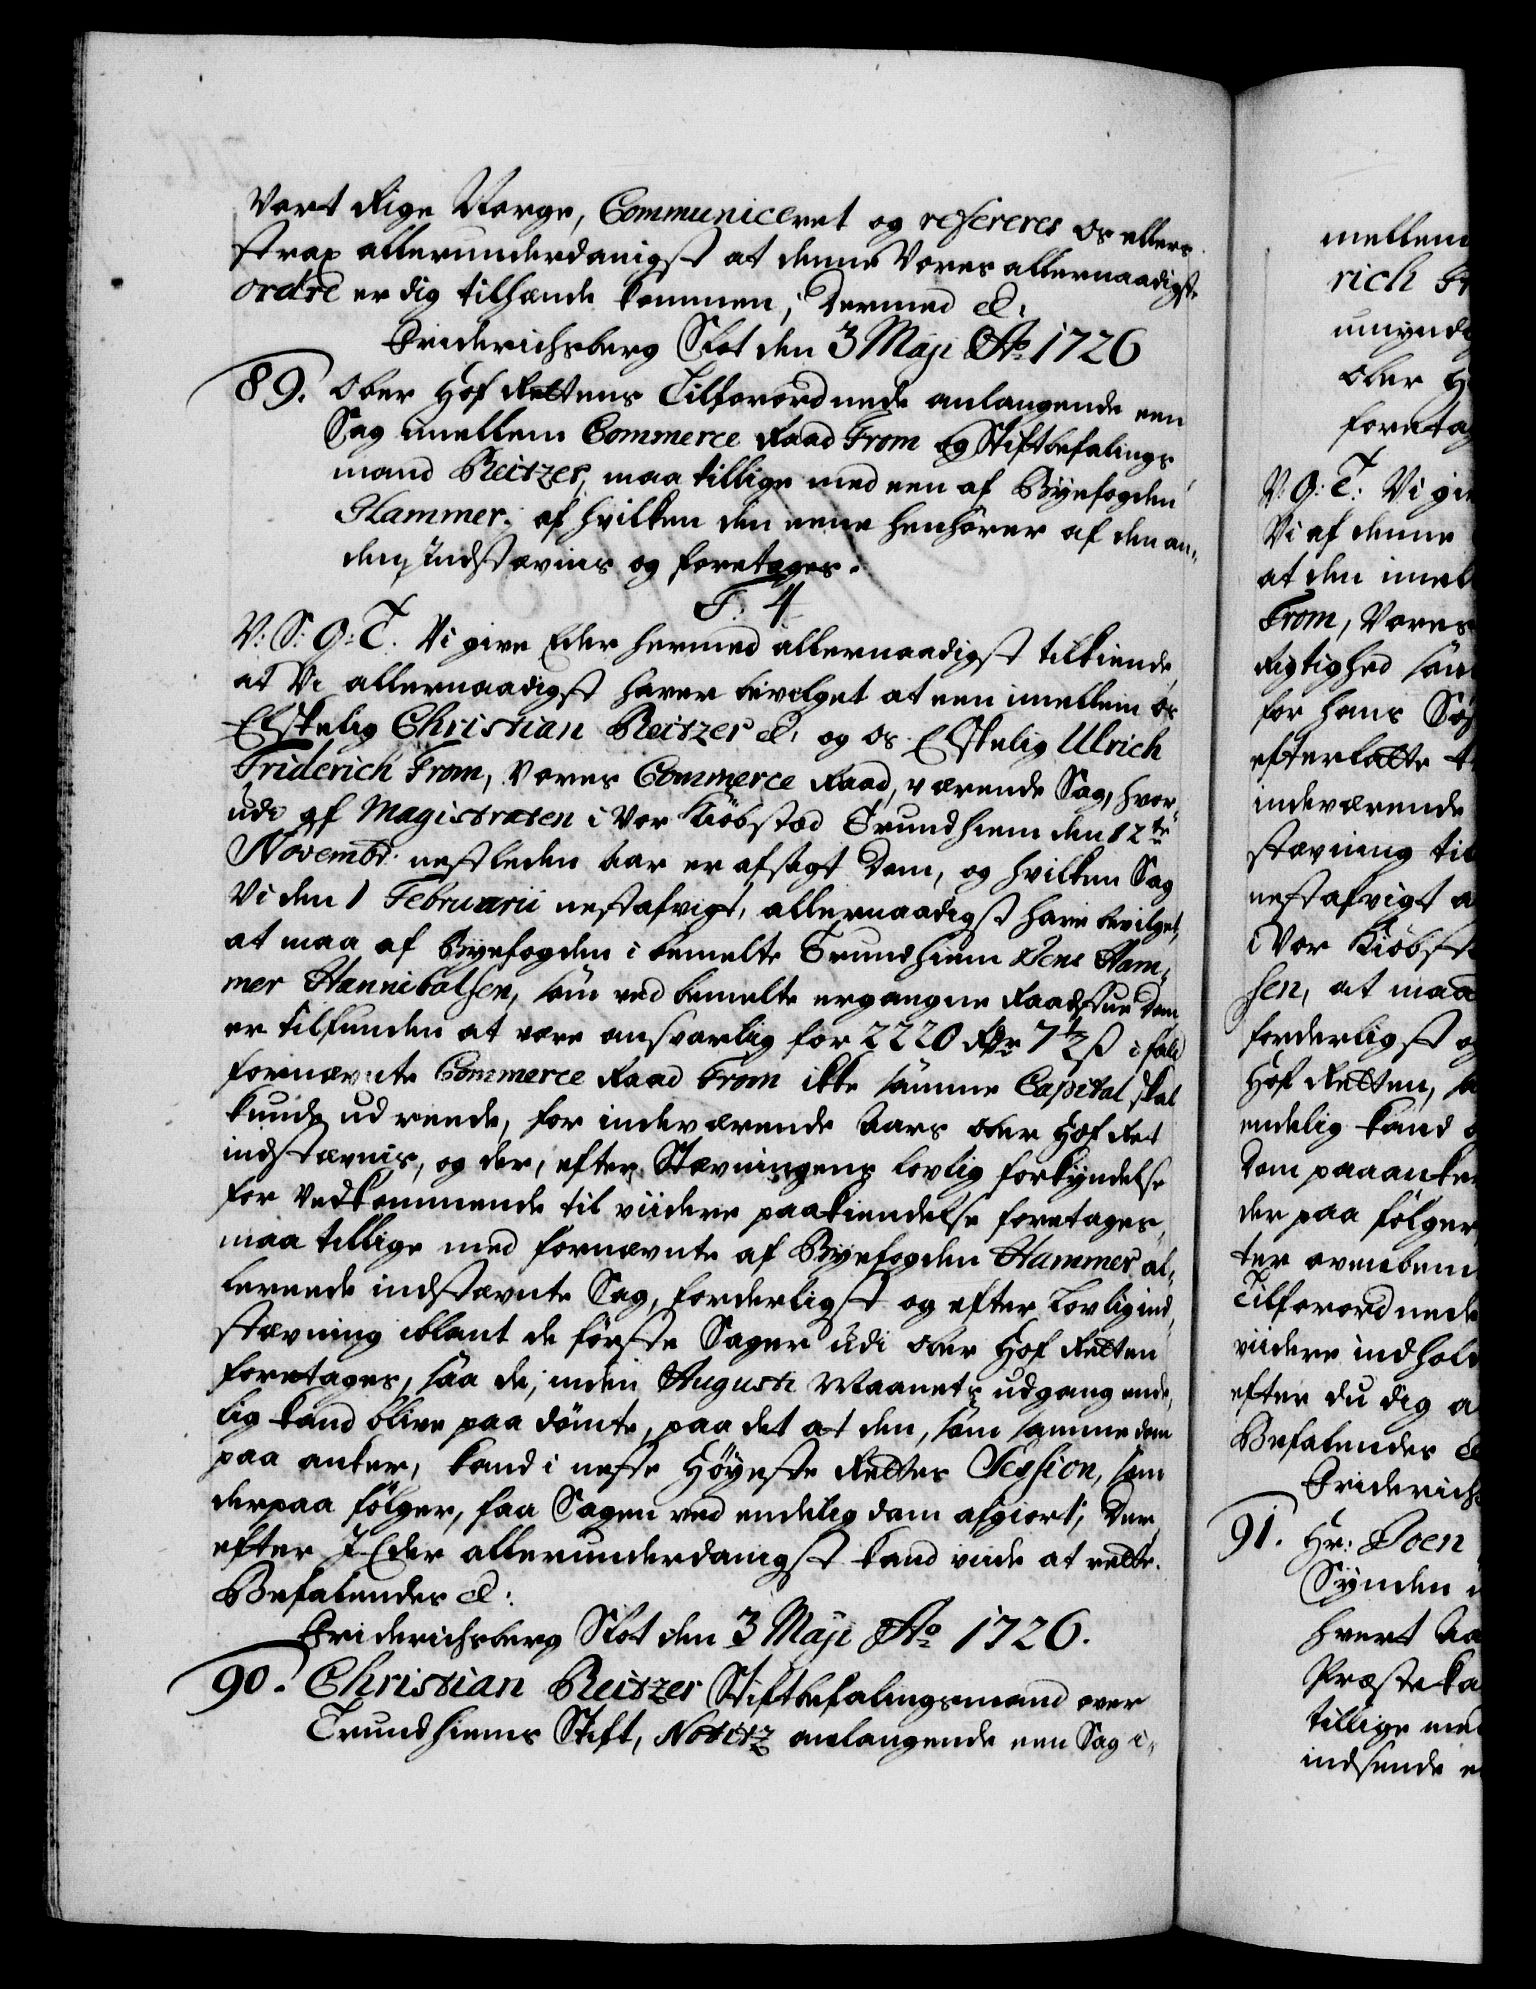 Vort Rige Norge, Communiceret og refereres os ellers
strax allerunderdanigst at denne Vores allernaadigste
ordre er dig tilhænde kommen, Dermed &:
Friderichsberg Slot den 3 Maji Ao 1726
89. Ober Hof Rettens Tilforordnede anlangende een
Sag imellem Commerce Raad From og Stiftbefalings
mand Reitzer, maa tillige med een af Byefogden
Hammer, af hvilken den eene henhører af den an-
den, Indstævnis og foretages.
F. 4
V: S: G: T. Vi give Eder hermed allernaadigst tilkiende,
at Vi allernaadigst haver bevilget at een imellem os
Elskelig Christian Reitzer &, og os Elskelig Ulrich
Friderich From, Vores Commerce Raad, værende Sag, hvor-
udi af Magistraten i Vor Kiøbstad Trundhiem den 12te
Novembr. nestleden Aar er afsagt Dom, og hvilken Sag
Vi den 1 Februarii nestafvigt, allernaadigst have bevilget,
at maa af Byefogden i bemelte Trundhiem Jens Ham-
mer Hannibalsen, som ved bemelte ergangne Raadstue Dom
er tilfunden at være ansvarlig for 2220 Rdr 7½ s i fald
fornævnte Commerce Raad From ikke samme Capital skal
kunde udreede, for indeværende Aars ober Hof Ret
indstævnis, og der, efter Stævningens lovlig forkyndelse
for Vedkommende til viidere paakiendelse foretages,
maa tillige med fornævnte af Byefogden Hammer al-
lereede indstævnte Sag, forderligst og efter Lovlig ind-
stævning iblant de første Sager udi ober Hof Retten
foretages, saa de, inden Augusti Maanets udgang ende-
lig kand blive paadømte, paa det at den, som samme dom
paa anker, kand i neste Høyeste Rettes Session, som
derpaa følger, faa Sagen ved endelig dom afgiort; Der
efter I Eder allerunderdanigst kand viide at rette.
Befalendes &:
Friderichsberg Slot den 3 Maji Ao 1726.
90. Christian Reitzer Stiftbefalingsmand over
Trundhiems Stift, Notitz anlangende een Sag i-
mellem
rich Fr
umynd
ober H
foretag
V: G: T: Vi giv
Vi af denne
at den imel
From, Vores
Rigtighed som
for hans Sø
efterlatte
indeværende
stævning til
nestafvigt a
i Vor Kiøbst
sen, at maa
forderligst og
Hof Retten, sa
endelig kand
dom paaanke
der paa følger
ter ovenbem
Tilforordnede
viidere indhold
efter du dig a
Befalendes &
Friderichs
91. Hr: Joen
Synden
hvert Aa
Præste ka
tillige med
indsende e